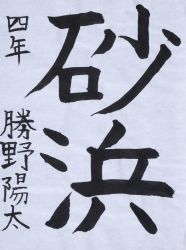 砂浜
四年
勝野陽太